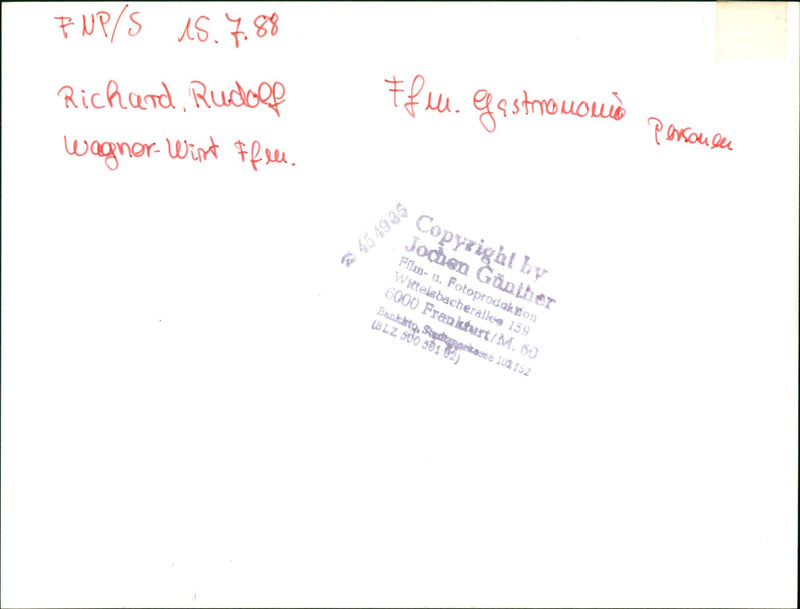 FNP/S 15.7.88
Richard, Rudolf
Wagner-Wirt Ffm.
Ffm. Gastronomie
Personen
☎ 454985
Copyright by
Jochen Günther
Film- u. Fotoproduktion
Wittelsbacherallee 159
6000 Frankfurt/M. 60
Bankkto. Stadtsparkasse 102152
(BLZ 500 501 02)